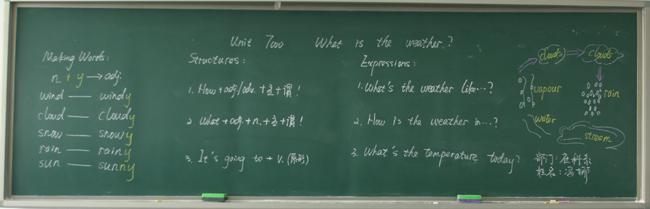 Unit Two What is the weather?
Making Words:
n + y → adj.
wind — windy
cloud — cloudy
snow — snowy
rain — rainy
sun — sunny
Structures:
1. How+adj/adv.+主+谓!
2. What+adj.+n.+主+谓!
3. It's going to + v.(原形)
Expressions:
1. What's the weather like...?
2. How is the weather in...?
3. What's the temperature today?
clouds → clouds
vapour
rain
water
stream
部门:
姓名: